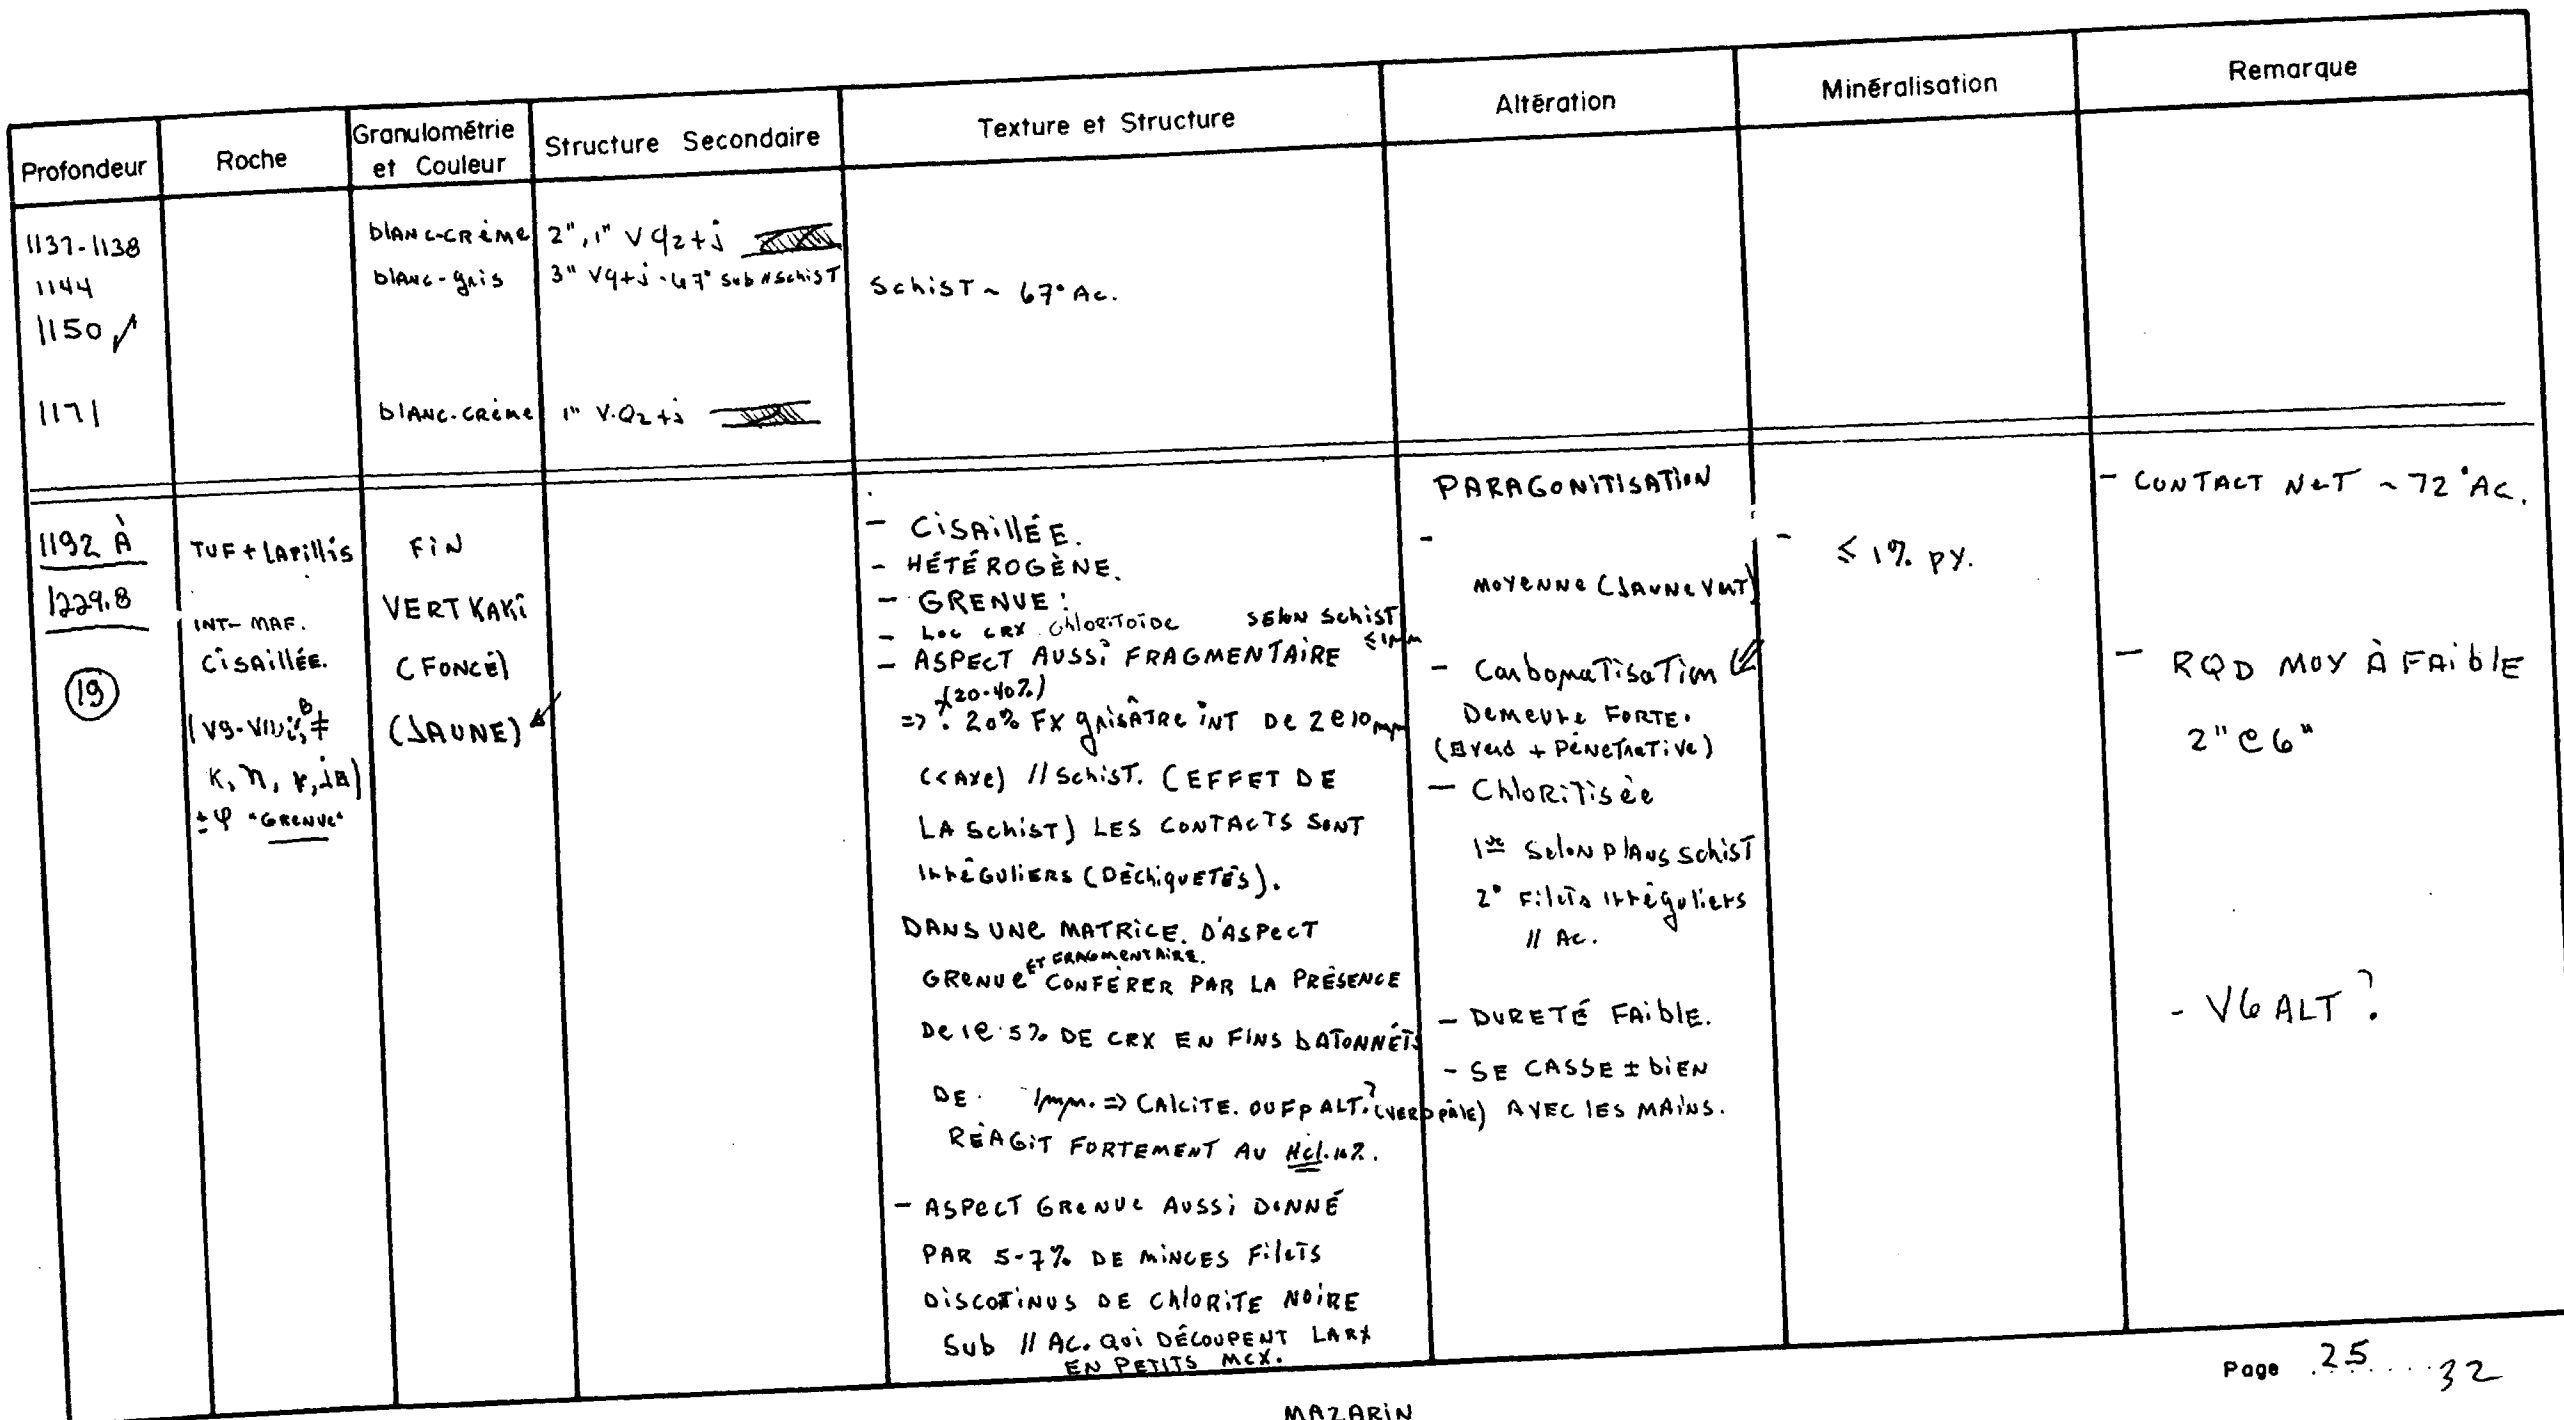 Profondeur
Roche
Granulométrie
et Couleur
Structure Secondaire
Texture et Structure
Altération
Minéralisation
Remarque
1137-1138
blANC-CRÈME
2", 1" V qz+j
1144
blANC-gris
3" Vq+j -67° sub // SchisT
SchisT ~ 67° Ac.
1150
1171
blANC-CRÈME
1" V.Qz+j
1192 À
1229.8
19
TUF + LAPILLIS
INT- MAF.
CISAILLÉE.
± φ "GRENUE"
FIN
VERT KAKI
(FONCÉ)
(JAUNE)
- CISAILLÉE.
- HÉTÉROGÈNE.
- GRENUE:
- LOC CRX ChlORITOIDE SELON SchisT
≤1mm
- ASPECT AUSSI FRAGMENTAIRE
(20-40%)
=> 20% FX gRISÂTRE INT DE 2 @ 10 mm
(<AXE) // SchisT. (EFFET DE
LA SchisT) LES CONTACTS SONT
IRRÉGULIERS (DÉChIQUETÉS).
DANS UNE MATRICE. D'ASPECT
ET FRAGMENTAIRE.
GRENUE CONFÉRER PAR LA PRÉSENCE
DE 1@ 5% DE CRX EN FINS bATONNÉTS
DE 1mm. => CALCITE. OU Fp ALT.? (VERD PÂLE)
RÉAGIT FORTEMENT AU HCl.10%.
- ASPECT GRENUE AUSSI DONNÉ
PAR 5-7% DE MINCES FilETS
DISCOTINUS DE ChlORITE NOIRE
Sub // AC. QUI DÉCOUPENT LA RX
EN PETITS MCX.
PARAGONITISATION
-
MOYENNE (JAUNE VERT)
- CarbonaTisaTion
DEMEURE FORTE.
+ PÉNETRATIVE)
- ChloRITISÉE
1re SELON PLANS SchisT
2° FilETS IRRÉGULIERS
// AC.
- DURETÉ FAiblE.
- SE CASSE ± bIEN
AVEC lES MAINS.
- ≤ 1% PY.
- CONTACT NET ~ 72° AC.
- RQD MOY À FAiblE
2" @ 6"
- V6 ALT ?
Page 25 32
MAZARIN